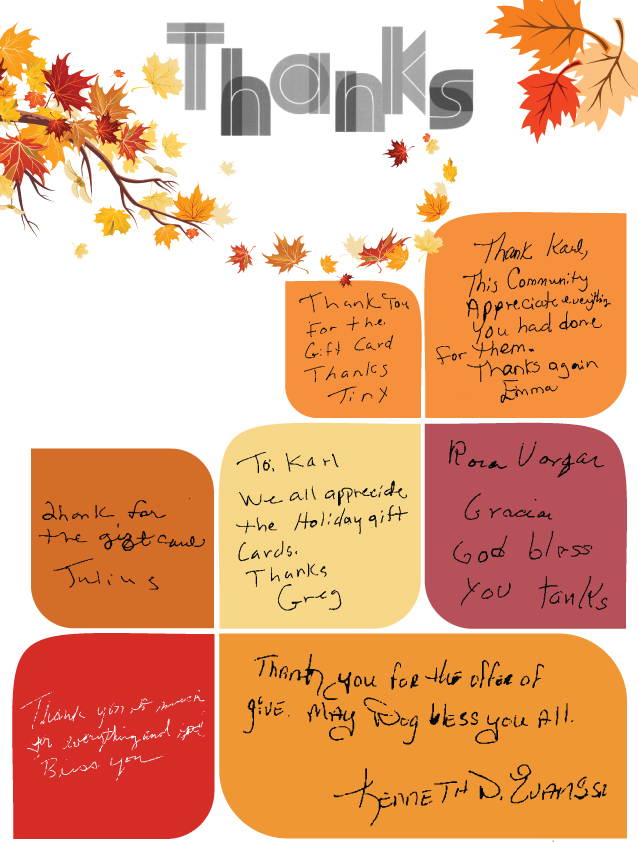 Thanks
Thank Karl,
This Community
Appreciate everything
you had done
for them.
Thanks again
Emma
Thank You
For the
Gift Card
Thanks
Tiny
To, Karl
We all appreciate
the Holiday gift
Cards.
Thanks
Greg
Rosa Vargas
Gracias
God bless
you tanks
Thank for
the gift card
Julius
Thank you so much
for everything and
Bless you
Thank you for the offer of
give. May God bless you All.
Kenneth D.